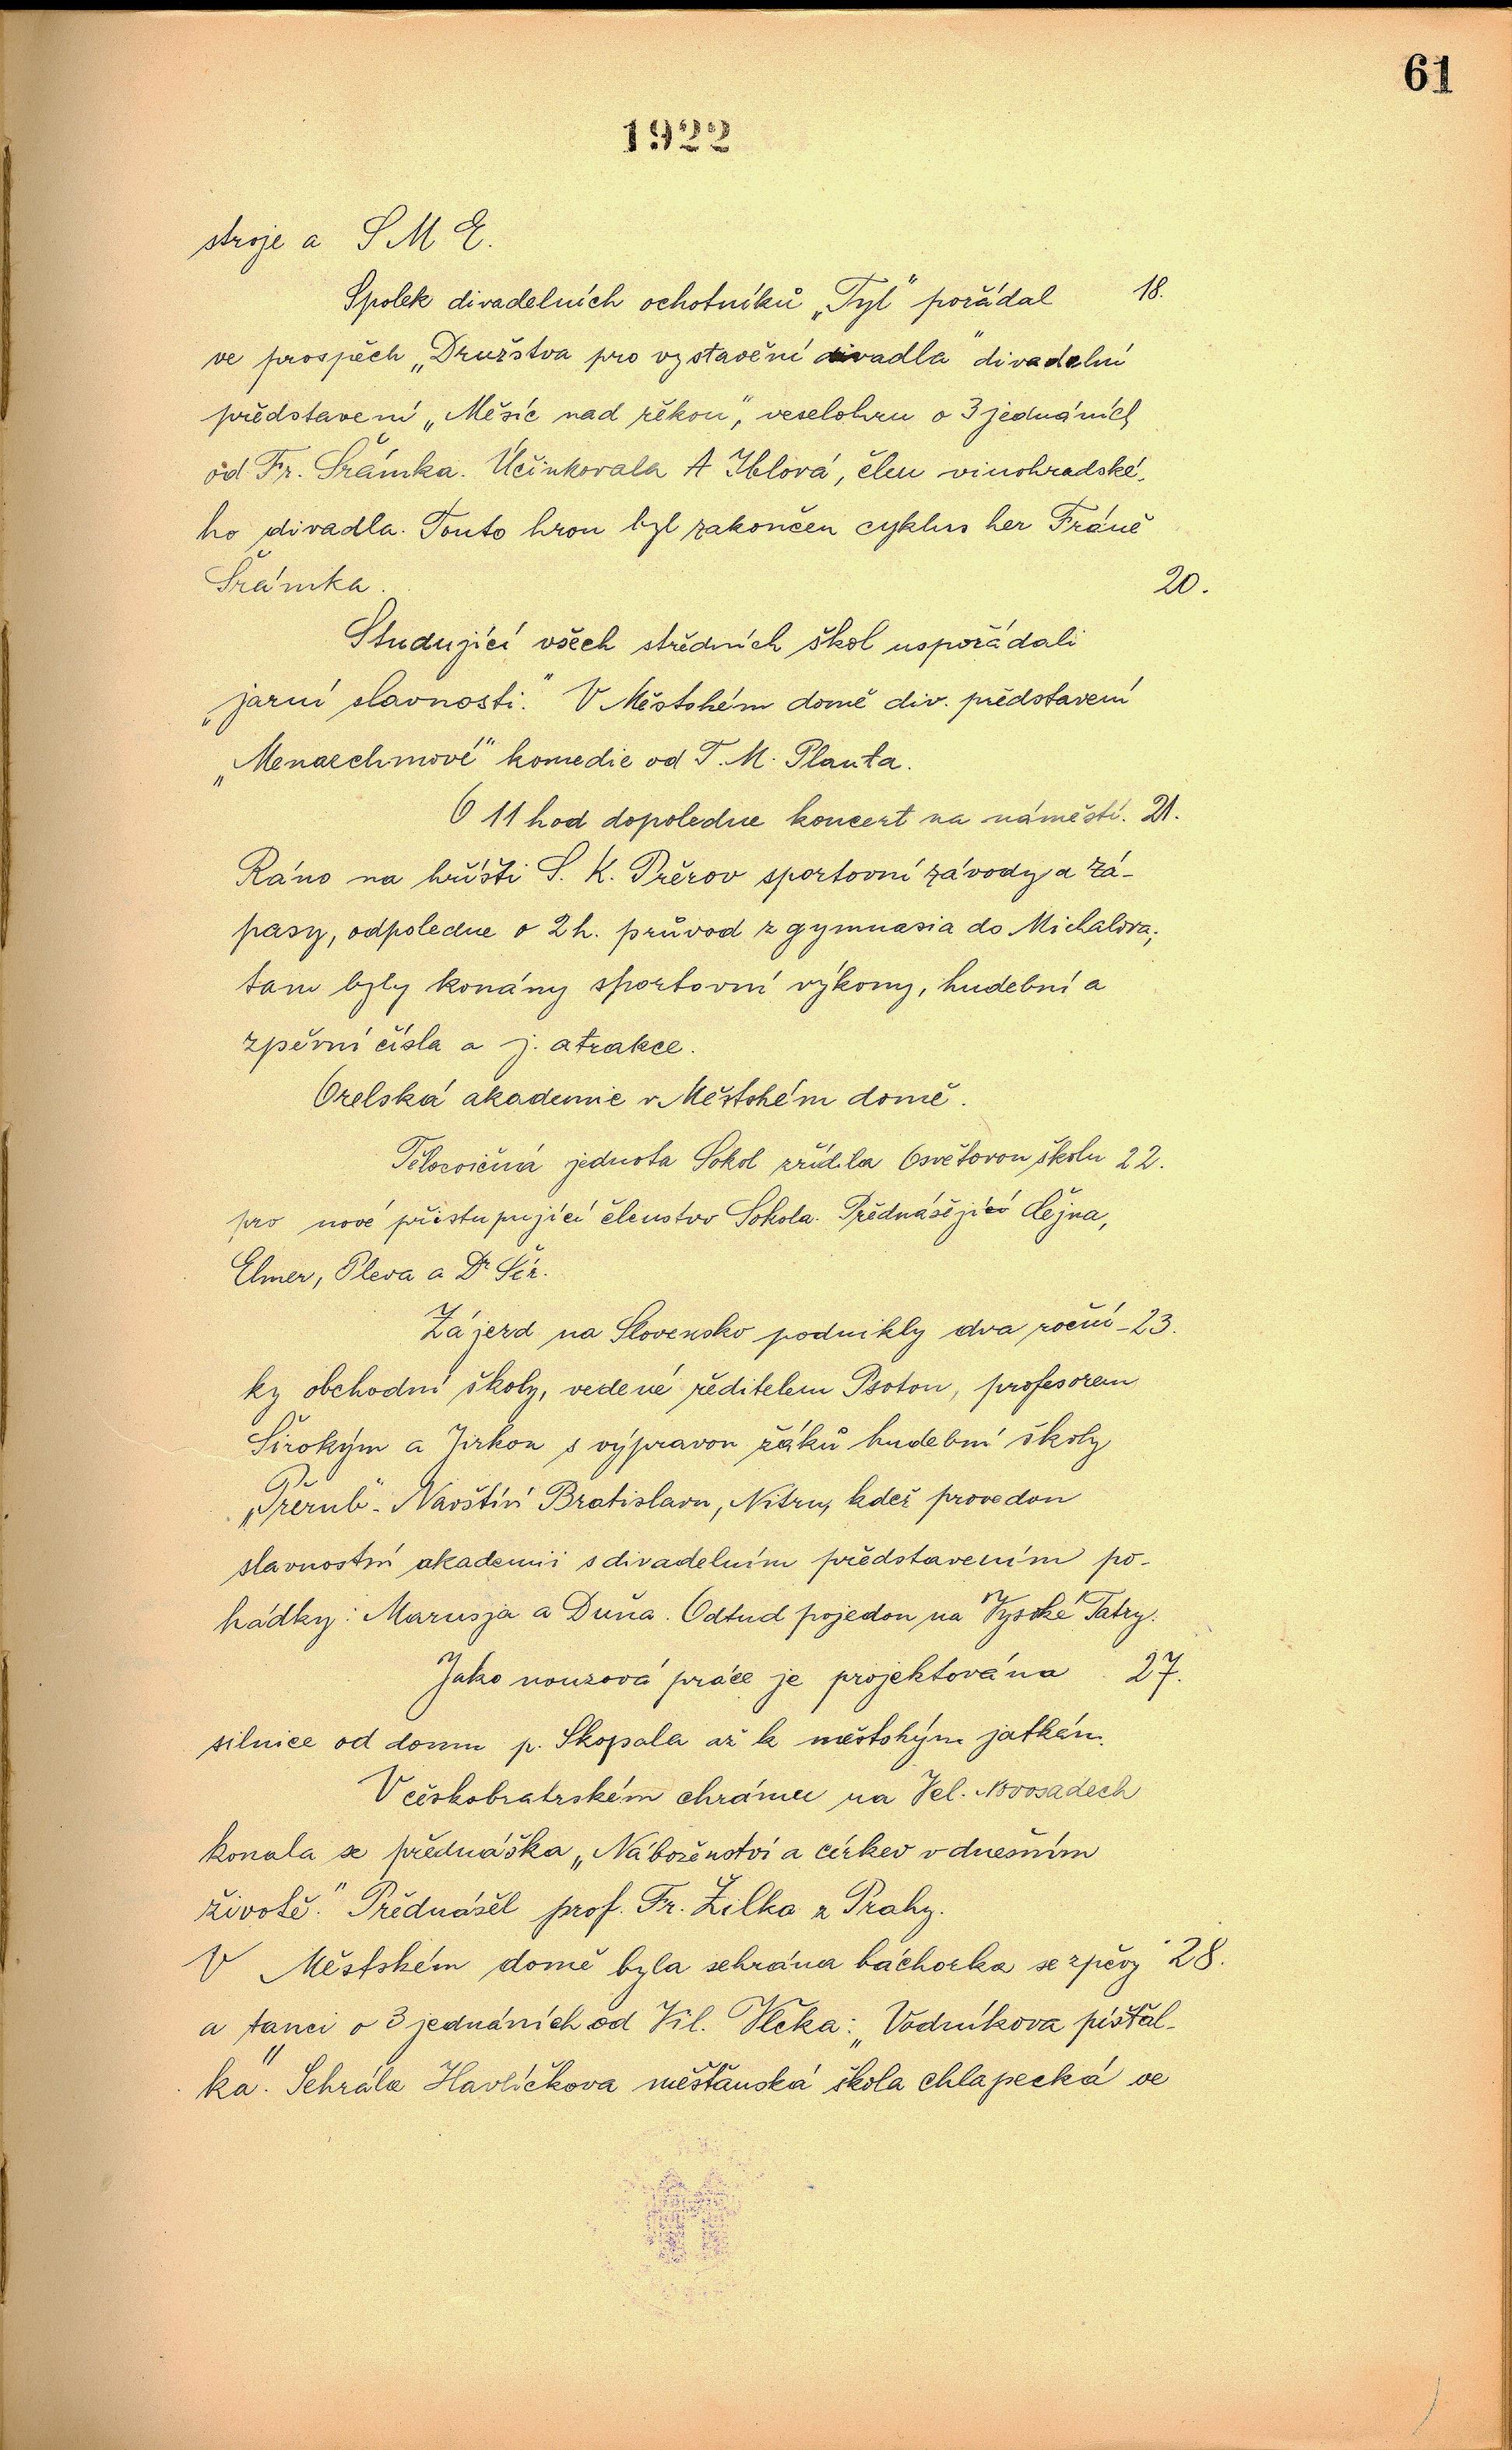 61
1922
stroje a S M E.
Spolek divadelních ochotníků „Tyl" pořádal 18.
ve prospěch „Družstva pro vystavění divadla" divadelní
představení „Měsíc nad řekou", veselohru o 3 jednáních
od Fr. Šrámka. Účinkovala A Iblová, člen vinohradské-
ho divadla. Touto hrou byl zakončen cyklus her Fráně
Šrámka. 20.
Studující všech středních škol uspořádali
„jarní slavnosti." V Městském domě div. představení
„Menaechmové" komedie od T. M. Plauta.
O 11 hod dopoledne koncert na náměstí. 21.
Ráno na hřišti S. K. Přerov sportovní závody a zá-
pasy, odpoledne o 2 h. průvod z gymnasia do Michalova;
tam byly konány sportovní výkony, hudební a
zpěvní čísla a j. atrakce.
Orelská akademie v Městském domě.
Tělocvičná jednota Sokol zřídila Osvětovou školu 22.
pro nové přistupující členstvo Sokola. Přednášející Čejna,
Elmer, Pleva a Dr Šír.
Zájezd na Slovensko podnikly dva roční- 23.
ky obchodní školy, vedené ředitelem Psotou, profesorem
Širokým a Jirkou s výpravou žáků hudební školy
„Přerub". Navštíví Bratislavu, Nitru, kdež provedou
slavnostní akademii s divadelním představením po-
hádky: Marusja a Duňa. Odtud pojedou na Vysoké Tatry.
Jako nouzová práce je projektována 27.
silnice od domu p. Skopala až k městským jatkám.
V českobratrském chrámu na Vel. Novosadech
konala se přednáška „Náboženství a církev v dnešním
životě." Přednášel prof. Fr. Žilka z Prahy.
V Městském domě byla sehrána báchorka se zpěvy 28.
a tanci o 3 jednáních od Vil. Vlčka: „Vodníkova píšťal-
ka". Sehrála Havlíčkova měšťanská škola chlapecká ve